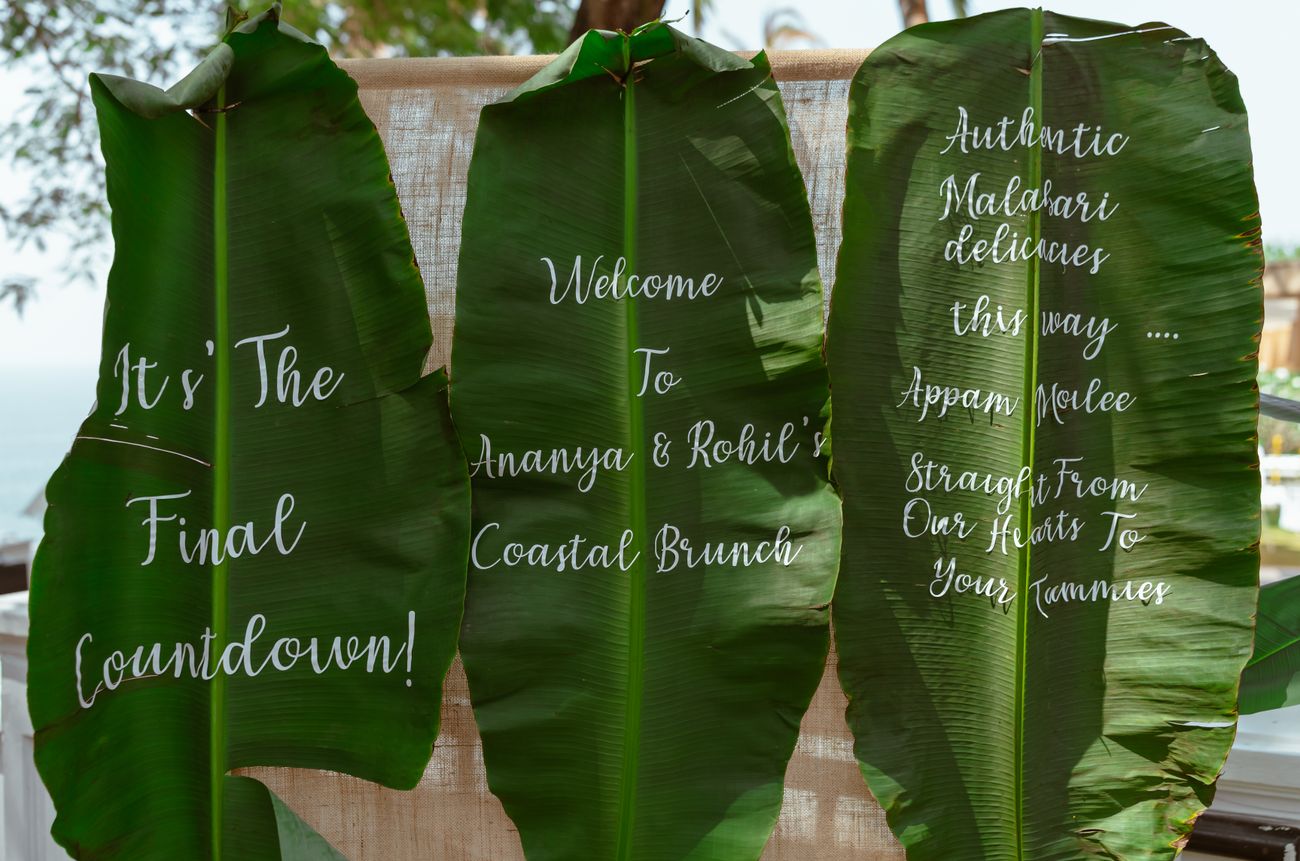 It's' The
Final
Countdown!
Welcome
To
Ananya & Rohil's
Coastal Brunch
Authentic
Malabari
delicacies
this way ....
Appam Moilee
Straight From
Our Hearts To
Your Tummies